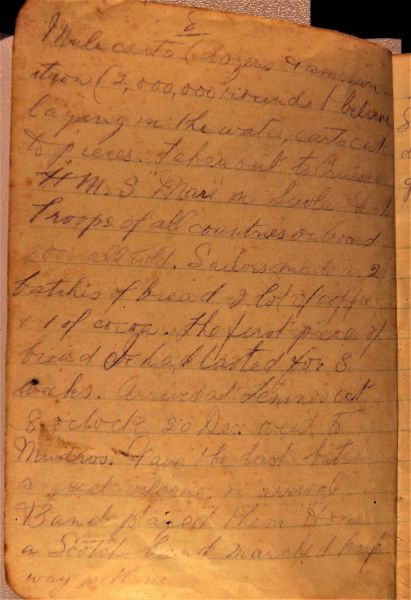 8
Mule carts (dozens & ammun
ition (2,000,000 rounds I believe
laying in the water, carts cut
to pieces. Taken out to Cruiser
H.M.S "Mars" in Suvla
Troops of all countries on board
2000 all told. Sailors made us 2
batches of bread 2 lot of coffee
& 1 of cocoa. The first piece of
bread I had tasted for 8
weeks. Arrived at Lemnos at
8 oclock 20 Dec. went to
Mudros. Gave the last
a great welcome on arrival
Band played them Home
a Scotch band marched half
way with us